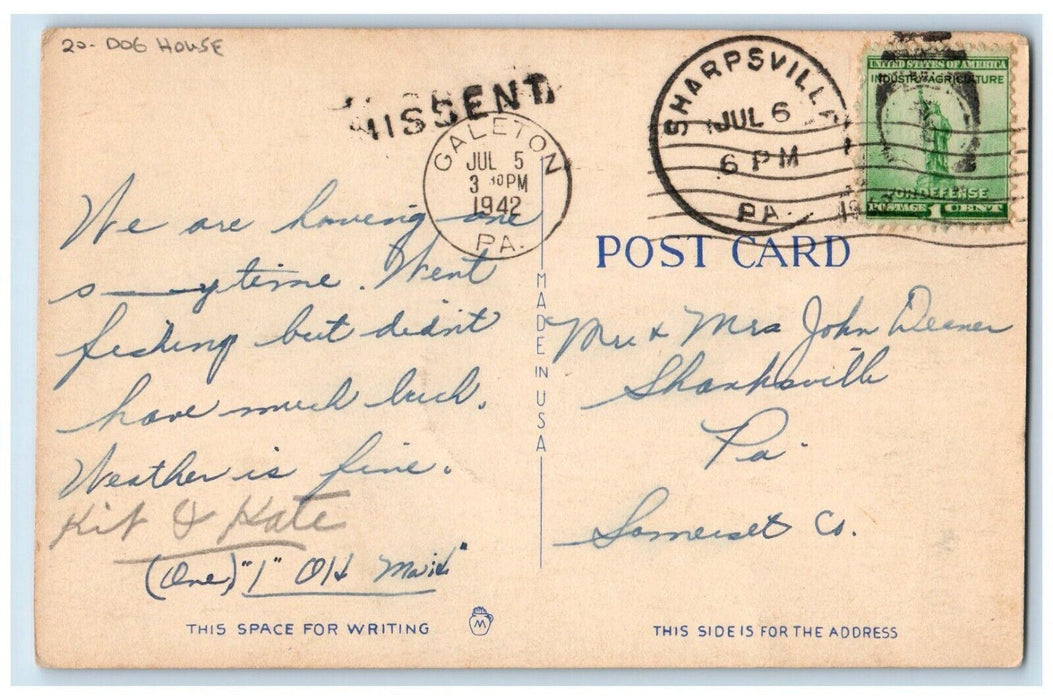 20- DOG HOUSE
MISSENT
GALETON
JUL 5
3 30 PM
1942
PA.
SHARPSVILLE
JUL 6
6 PM
PA.
UNITED STATES OF AMERICA
INDUSTRY AGRICULTURE
FOR DEFENSE
POSTAGE 1 CENT
POST CARD
We are having one
s——y time. Went
fishing but didn't
have much luck.
Weather is fine.
Kit & Kate
(One) "1" Old Maid"
MADE IN USA
Mr & Mrs John Deaner
Shanksville
Pa.
Somerset Co.
THIS SPACE FOR WRITING
M
THIS SIDE IS FOR THE ADDRESS